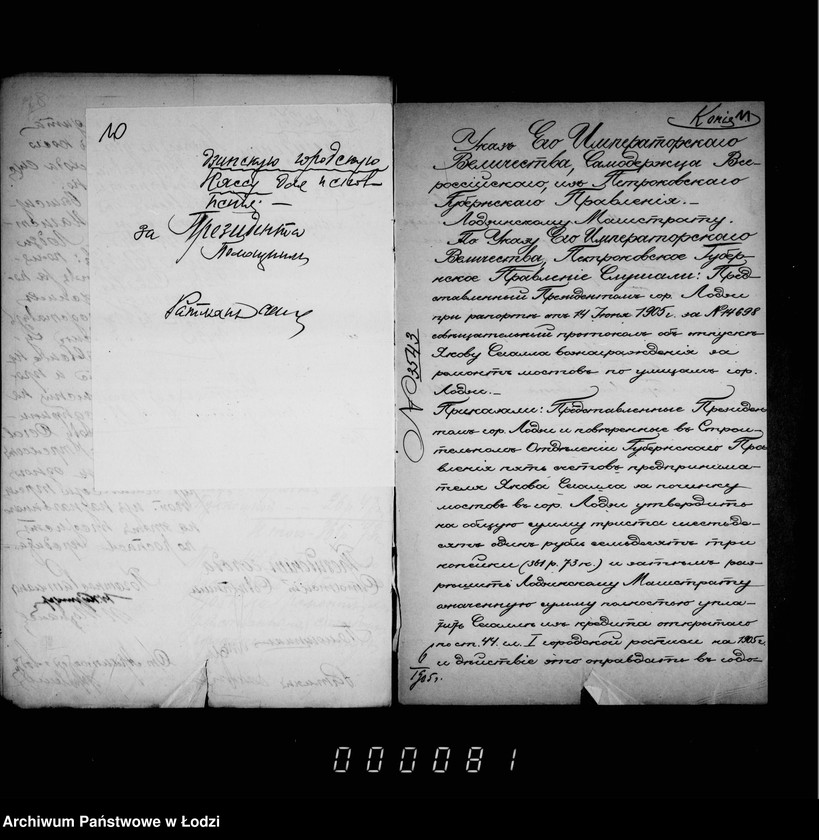 10
дзинскую городскую
Кассу для испол-
за Президента
Помощникъ
Ратманъ
Копія
Указъ Его Императорскаго
Величества, Самодержца Все-
россійскаго, изъ Петроковскаго
Губернскаго Правленія.—
Лодзинскому Магистрату.
По Указу Его Императорскаго
Величества, Петроковское Губерн-
ское Правленіе Слушали: Пред-
ставленный Президентомъ гор. Лодзи
при рапортѣ отъ 14 Іюня 1905 г. за № 14698
совѣщательный протоколъ объ отпускѣ
Якову вознагражденія за
ремонтъ мостовъ по улицамъ гор.
Лодзи.—
Приказали: Представленные Президен-
томъ гор. Лодзи и повѣренные въ Строи-
тельномъ Отдѣленіи Губернскаго Пра-
вленія пять счетовъ предпринима-
теля Якова за починку
мостовъ въ гор. Лодзи утвердить
на общую сумму триста шестьде-
сятъ одинъ рубль семьдесятъ три
копѣйки (361 р. 73 к.) и затѣмъ раз-
рѣшить Лодзинскому Магистрату
означенную сумму полностью упла-
тить изъ кредита открытаго
по ст. 44. см. I городской росписи на 1905 г.
и дѣйствіе это оправдать въ годо-
№ 2543
1905 г.
000081
Archiwum Państwowe w Łodzi